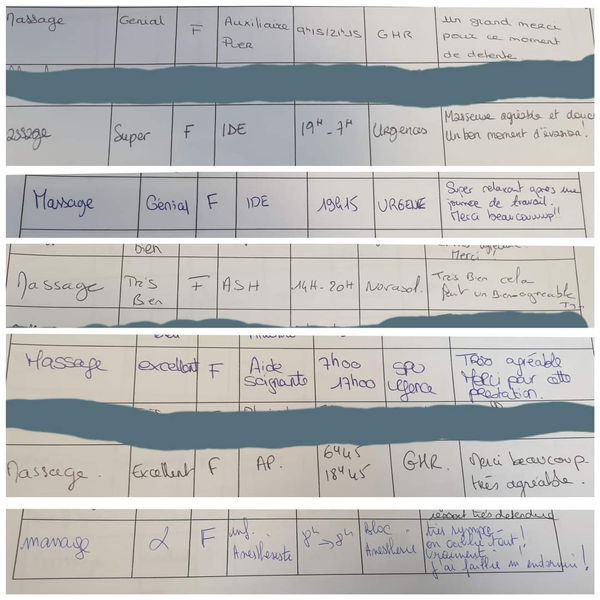 Massage Génial F Auxiliaire Puer 9h15/21h15 GHR un grand merci
pour ce moment
de détente
massage Super F IDE 19H-7H Urgences Masseuse agréable et douce
Un bon moment d'évasion!
Massage Génial F IDE 19h15 URGENCE Super relaxant après une
journée de travail.
Merci beaucouuup!!
bien
Merci!
Massage Très Bien F ASH 14H-20H Novasol. Très Bien cela
fait un Bien agréable
Massage excellent F Aide Soignante 7h00 17h00 SPU urgence Très agréable
Merci pour cette
prestation.
Massage. Excellent F AP. 6h45 18h45 GHR. Merci beaucoup
très agréable.
massage F inf. Anesthésiste 8h → 8h Bloc. Anesthésie très sympa -
on oublie tout!
vraiment.
j'ai faillie m'endormir!